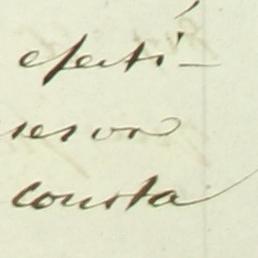 efecti-
sesor
consta